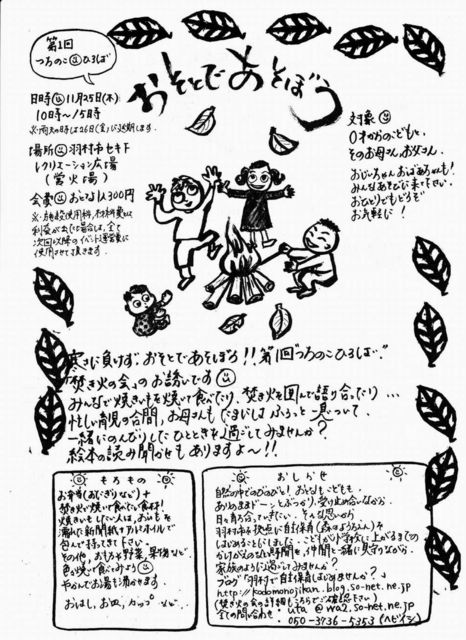 第1回
つちのこひろば
おそとであそぼう
日時 11月25日(木)
10時〜15時
※雨天の時は26日(金)に延期します。
場所 羽村市セキド
レクリエーション広場
(営火場)
会費 おとな1人300円
※施設使用料、材料費など
利益が出た場合は、全て
次回以降のイベント運営費に
使用させて頂きます。
対象
0才からのこどもと、
そのお母さん、お父さん。
おじいちゃん、おばあちゃんも!
みんなあそびに来て下さい。
おひとりでもどうぞ
お気軽に!
寒さに負けず、おそとであそぼう!!第1回"つちのこひろば"
「焚き火の会」のお誘いです
みんなで焼きいもを焼いて食べたり、焚き火を囲んで語り合ったり…
忙しい育児の合間、お母さんもたまにはふぅっと一息ついて、
一緒にのんびりしたひとときを過ごしてみませんか?
絵本の読み聞かせもありますよ〜!!
もちもの
お弁当(おにぎりなど)+
焚き火で焼いて食べたい食材!
焼きいもしたい人は、おいもを
濡れた新聞紙+アルミホイルで
包んで持ってきて下さい。
その他、おもちや野菜、果物など、
色々焼いて食べてみよう
やかんでお湯も沸かます。
おはし、お皿、カップ
おしらせ
自然の中でのびのびと!おとなもこどもも、
ありのままドーンとぶつかり、受け止め合いながら、
日々育ち合っていきたい。そんな思いから
羽村市を拠点に自主保育(森のようちえん)を
はじめることにしました。こどもが小学校に上がるまでの
かけがえのない時間を、仲間と一緒に見守りながら、
家族のように過ごしてみませんか?
ブログ「羽村で自主保育はじめませんか?」
http://kodomonojikan.blog.so-net.ne.jp
(焚き火の会の詳細もこちらでご確認下さい)
全ての問い合わせ uta@wa2.so-net.ne.jp
050-3736-5353